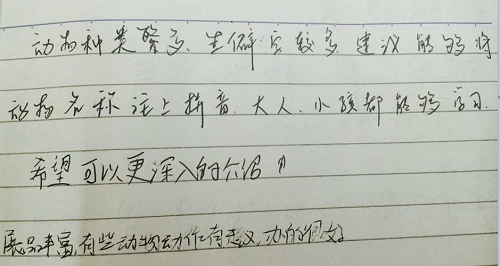 动物种类繁多、生僻字较多、建议能够将
动物名称注上拼音、大人、小孩都能够学习.
希望可以更深入的介绍
展品丰富,有些动物动作有意义,办的很好